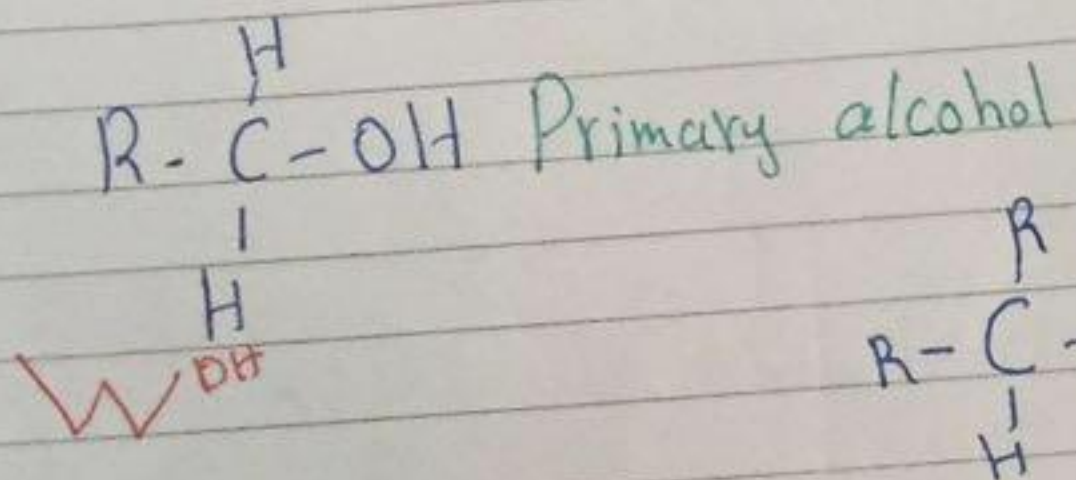 H
R - C - OH Primary alcohol
H
OH
R
R - C -
H